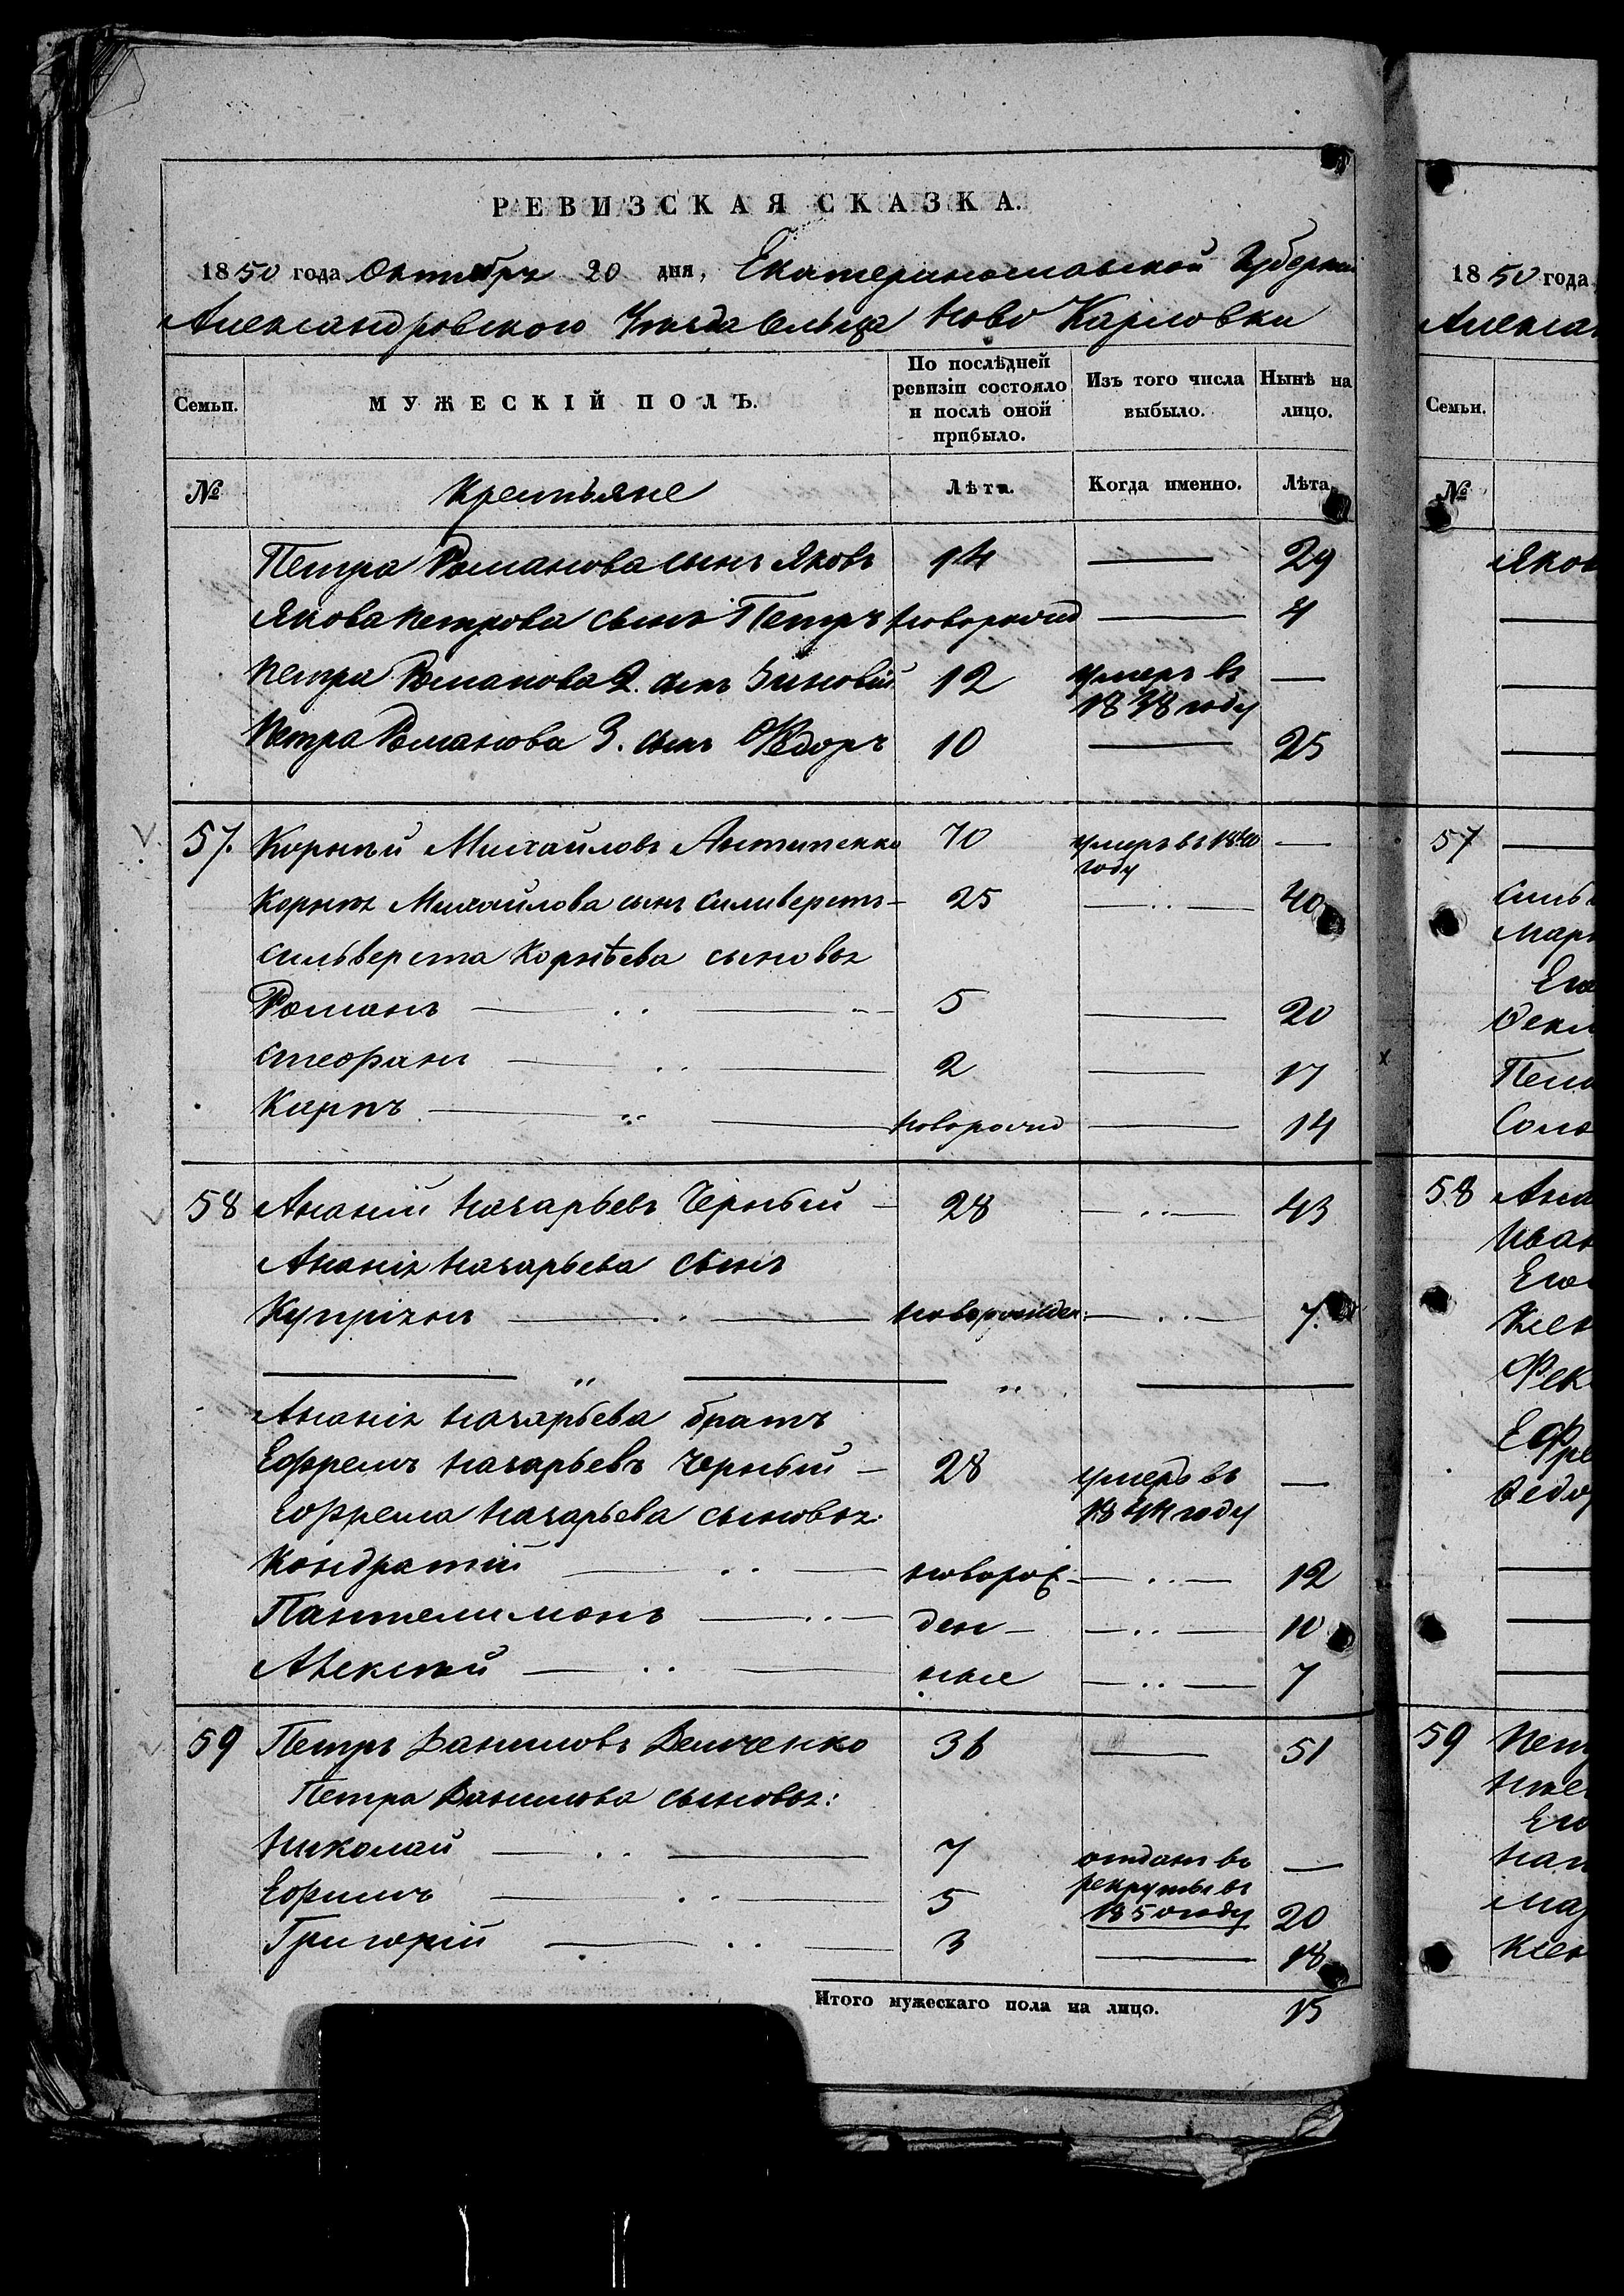 РЕВИЗСКАЯ СКАЗКА.
1850 года Октября 20 дня, Екатеринославской Губерніи
Александровского Уѣзда Сельца Ново Карловки
Семьи.
МУЖЕСКІЙ ПОЛЪ.
По послѣдней ревизіи состояло и послѣ оной прибыло.
Изъ того числа выбыло.
Нынѣ на лицо.
№ Крестьяне Лѣта. Когда именно. Лѣта.
Петра Романова сынъ Яковъ 14 — 29
Якова Петрова сынъ Петръ новорожд — 4
Петра Романова 2. сынъ Зиновій 12 умеръ въ 1838 году —
Петра Романова 3. сынъ Ѳедоръ 10 — 25
57. Корнѣй Михайловъ Антипенко 70 умеръ въ 1840 году —
Корнѣя Михайлова сынъ Силиверстъ — 25 — 40
Сильверста Корнѣева сыновья
Романъ 5 — 20
Стефанъ 2 — 17
Карпъ новорожд — 14
58 Ананій Назарьевъ Чёрный — 28 — 43
Ананія Назарьева сынъ
Купріянъ новорожден: — 7.
Ананія Назарьева братъ
Ефремъ Назарьевъ Черный — 28 умеръ въ 1844 году —
Еффрема Назарьева сыновья:
Кондратій новорож- — 12
Пантелимонъ ден- — 10
Алексѣй ные — 7
59 Петръ Даниловъ Демченко 36 — 51
Петра Данилова сыновья:
Николай 7 отданъ въ рекруты въ 1850 году —
Ефимъ 5 20
Григорій 3 — 18
Итого мужескаго пола на лицо. 15
1850 года
Семьи.
№
57
58
59